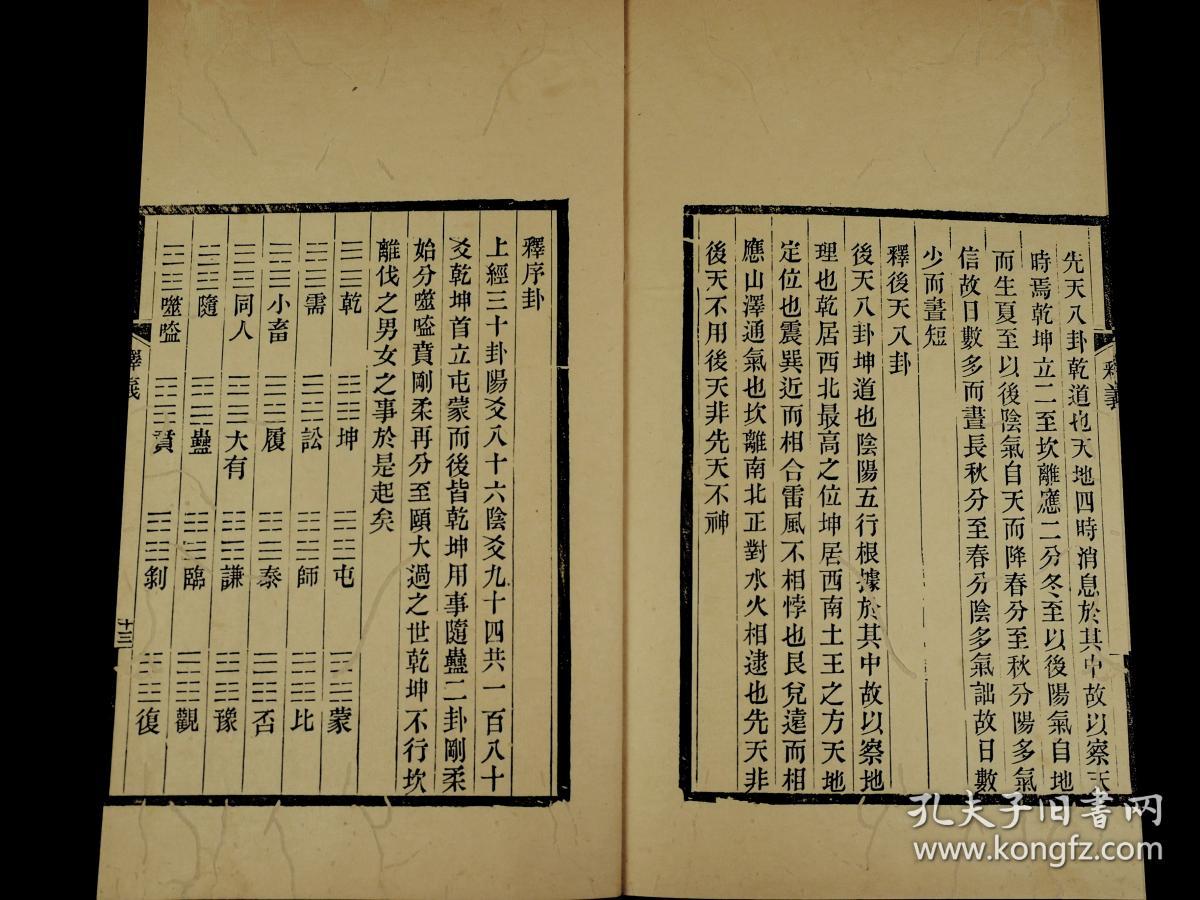 先天八卦乾道也天地四時消息於其中故以察天
時焉乾坤立二至坎離應二分冬至以後陽氣自地
而生夏至以後陰氣自天而降春分至秋分陽多氣
信故日數多而晝長秋分至春分陰多氣詘故日數
少而晝短
釋後天八卦
後天八卦坤道也陰陽五行根據於其中故以察地
理也乾居西北最高之位坤居西南土王之方天地
定位也震巽近而相合雷風不相悖也艮兌遠而相
應山澤通氣也坎離南北正對水火相逮也先天非
後天不用後天非先天不神
釋義
釋序卦
上經三十卦陽爻八十六陰爻九十四共一百八十
爻乾坤首立屯蒙而後皆乾坤用事隨蠱二卦剛柔
始分噬嗑賁剛柔再分至頤大過之世乾坤不行坎
離伐之男女之事於是起矣
乾 坤 屯 蒙
需 訟 師 比
小畜 履 泰 否
同人 大有 謙 豫
隨 蠱 臨 觀
噬嗑 賁 剝 復
釋義 十三
孔夫子旧书网
www.kongfz.com